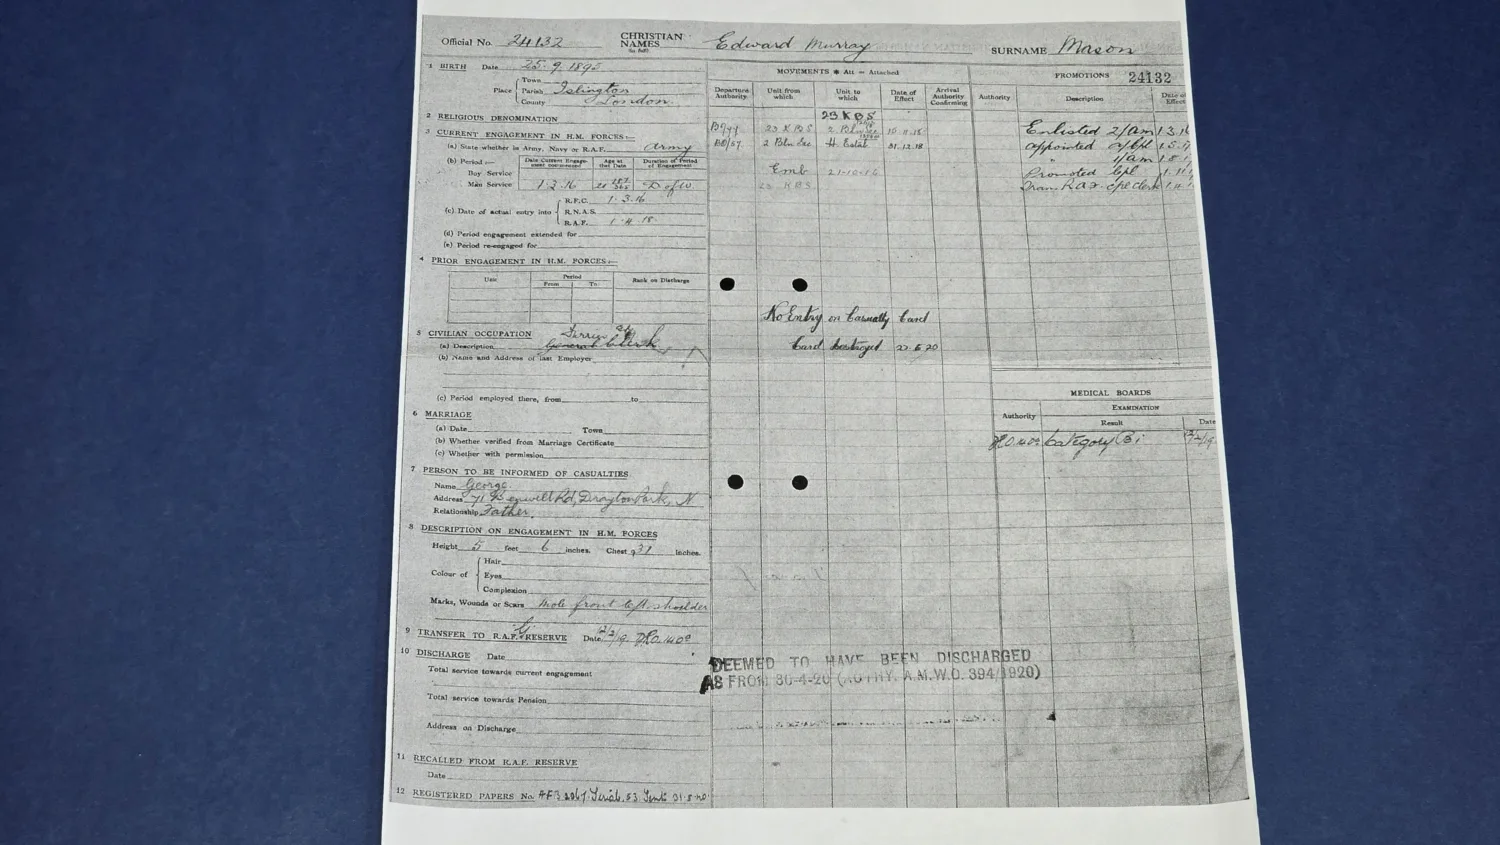 Official No. 24132 CHRISTIAN NAMES (in full) Edward Murray SURNAME Mason
1 BIRTH Date 25. 9. 1895
Place Town
Parish Islington
County London.
2 RELIGIOUS DENOMINATION
3 CURRENT ENGAGEMENT IN H.M. FORCES:—
(a) State whether in Army, Navy or R.A.F. Army
(b) Period:— Date Current Engagement commenced Age at that Date Duration of Period of Engagement
Boy Service
Man Service 1. 3. 16 D of W.
(c) Date of actual entry into R.F.C. 1. 3. 16
R.N.A.S.
R.A.F. 1. 4. 18.
(d) Period engagement extended for
(e) Period re-engaged for
4 PRIOR ENGAGEMENT IN H.M. FORCES:—
Unit Period Rank on Discharge
From To
5 CIVILIAN OCCUPATION
(a) Description General Clerk
(b) Name and Address of last Employer
(c) Period employed there, from to
6 MARRIAGE
(a) Date Town
(b) Whether verified from Marriage Certificate
(c) Whether with permission
7 PERSON TO BE INFORMED OF CASUALTIES
Name George
Address 71 Rd, Drayton Park, N.
Relationship Father.
8 DESCRIPTION ON ENGAGEMENT IN H.M. FORCES
Height 5 feet 6 inches. Chest 31 inches.
Colour of Hair
Eyes
Complexion
Marks, Wounds or Scars Mole front left shoulder
9 TRANSFER TO R.A.F. G RESERVE Date
10 DISCHARGE Date
Total service towards current engagement
Total service towards Pension
Address on Discharge
11 RECALLED FROM R.A.F. RESERVE
Date
12 REGISTERED PAPERS No.
MOVEMENTS * Att = Attached
Departure Authority Unit from which Unit to which Date of Effect Arrival Authority Confirming
23 K B S
23 K B S 2
2 Bln Sec H. Estab 31.12.18
Emb 21-10-16
23 K B S
No Entry on Casualty Card
Card Destroyed
DEEMED TO HAVE BEEN DISCHARGED
AS FROM 30-4-20 (AUTHY. A.M.W.O. 394/1920)
PROMOTIONS 24132
Authority Description Date of Effect
Enlisted 2/am 1 3.16
appointed
" 1/am
Promoted Cpl
MEDICAL BOARDS
Authority EXAMINATION
Result Date
Category Bi